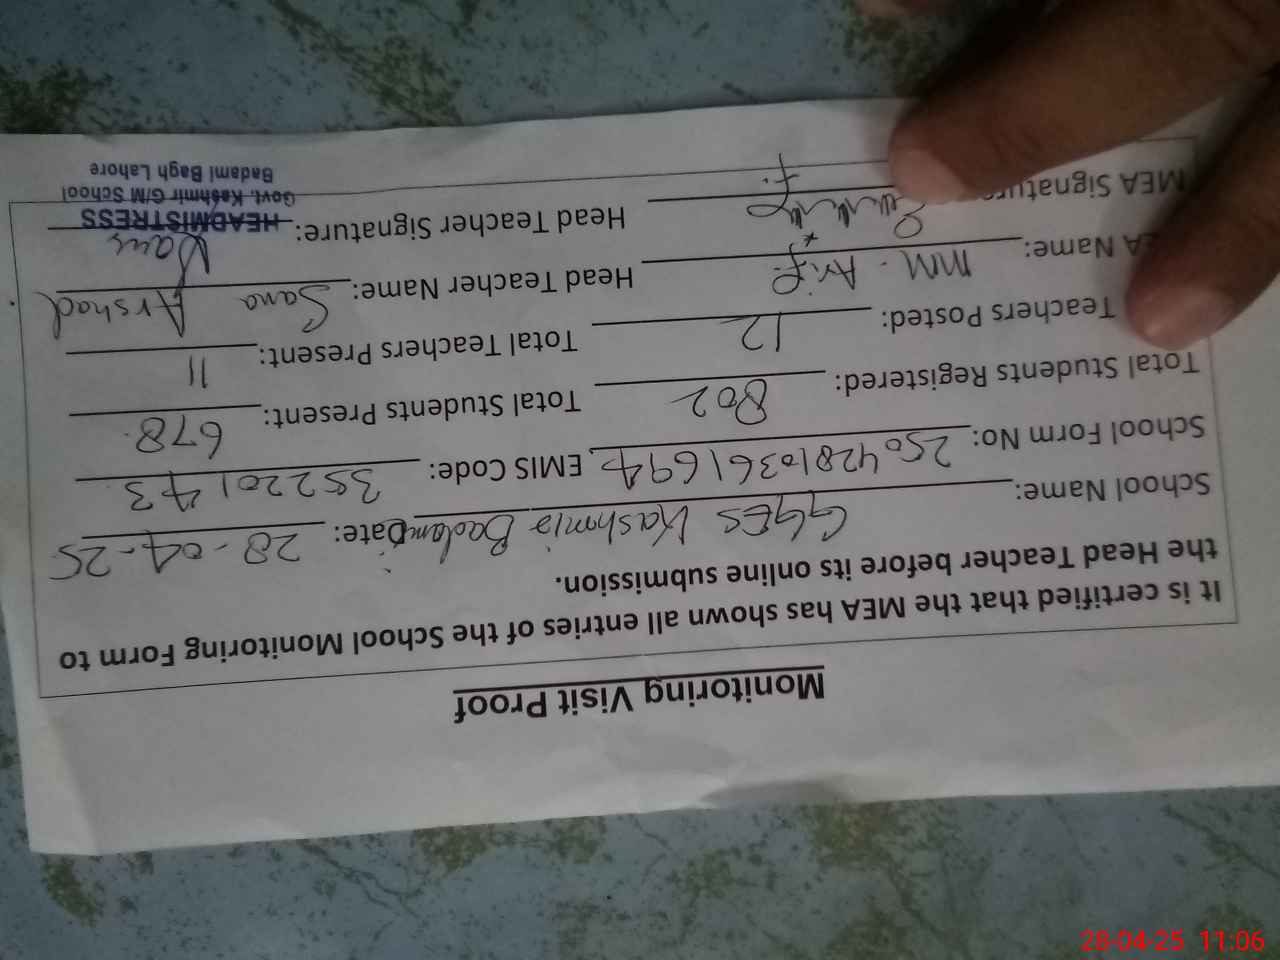 Monitoring Visit Proof
It is certified that the MEA has shown all entries of the School Monitoring Form to
the Head Teacher before its online submission.
School Name: GGES Kashmir Badami Date: 28-04-25
School Form No: 25042810361694 EMIS Code: 35220143
Total Students Registered: 802 Total Students Present: 678
Teachers Posted: 12 Total Teachers Present: 11
EA Name: MM. Arif Head Teacher Name: Sana Arshad
MEA Signature Head Teacher Signature:
HEADMISTRESS
Govt. Kashmir G/M School
Badami Bagh Lahore
28-04-25 11:06